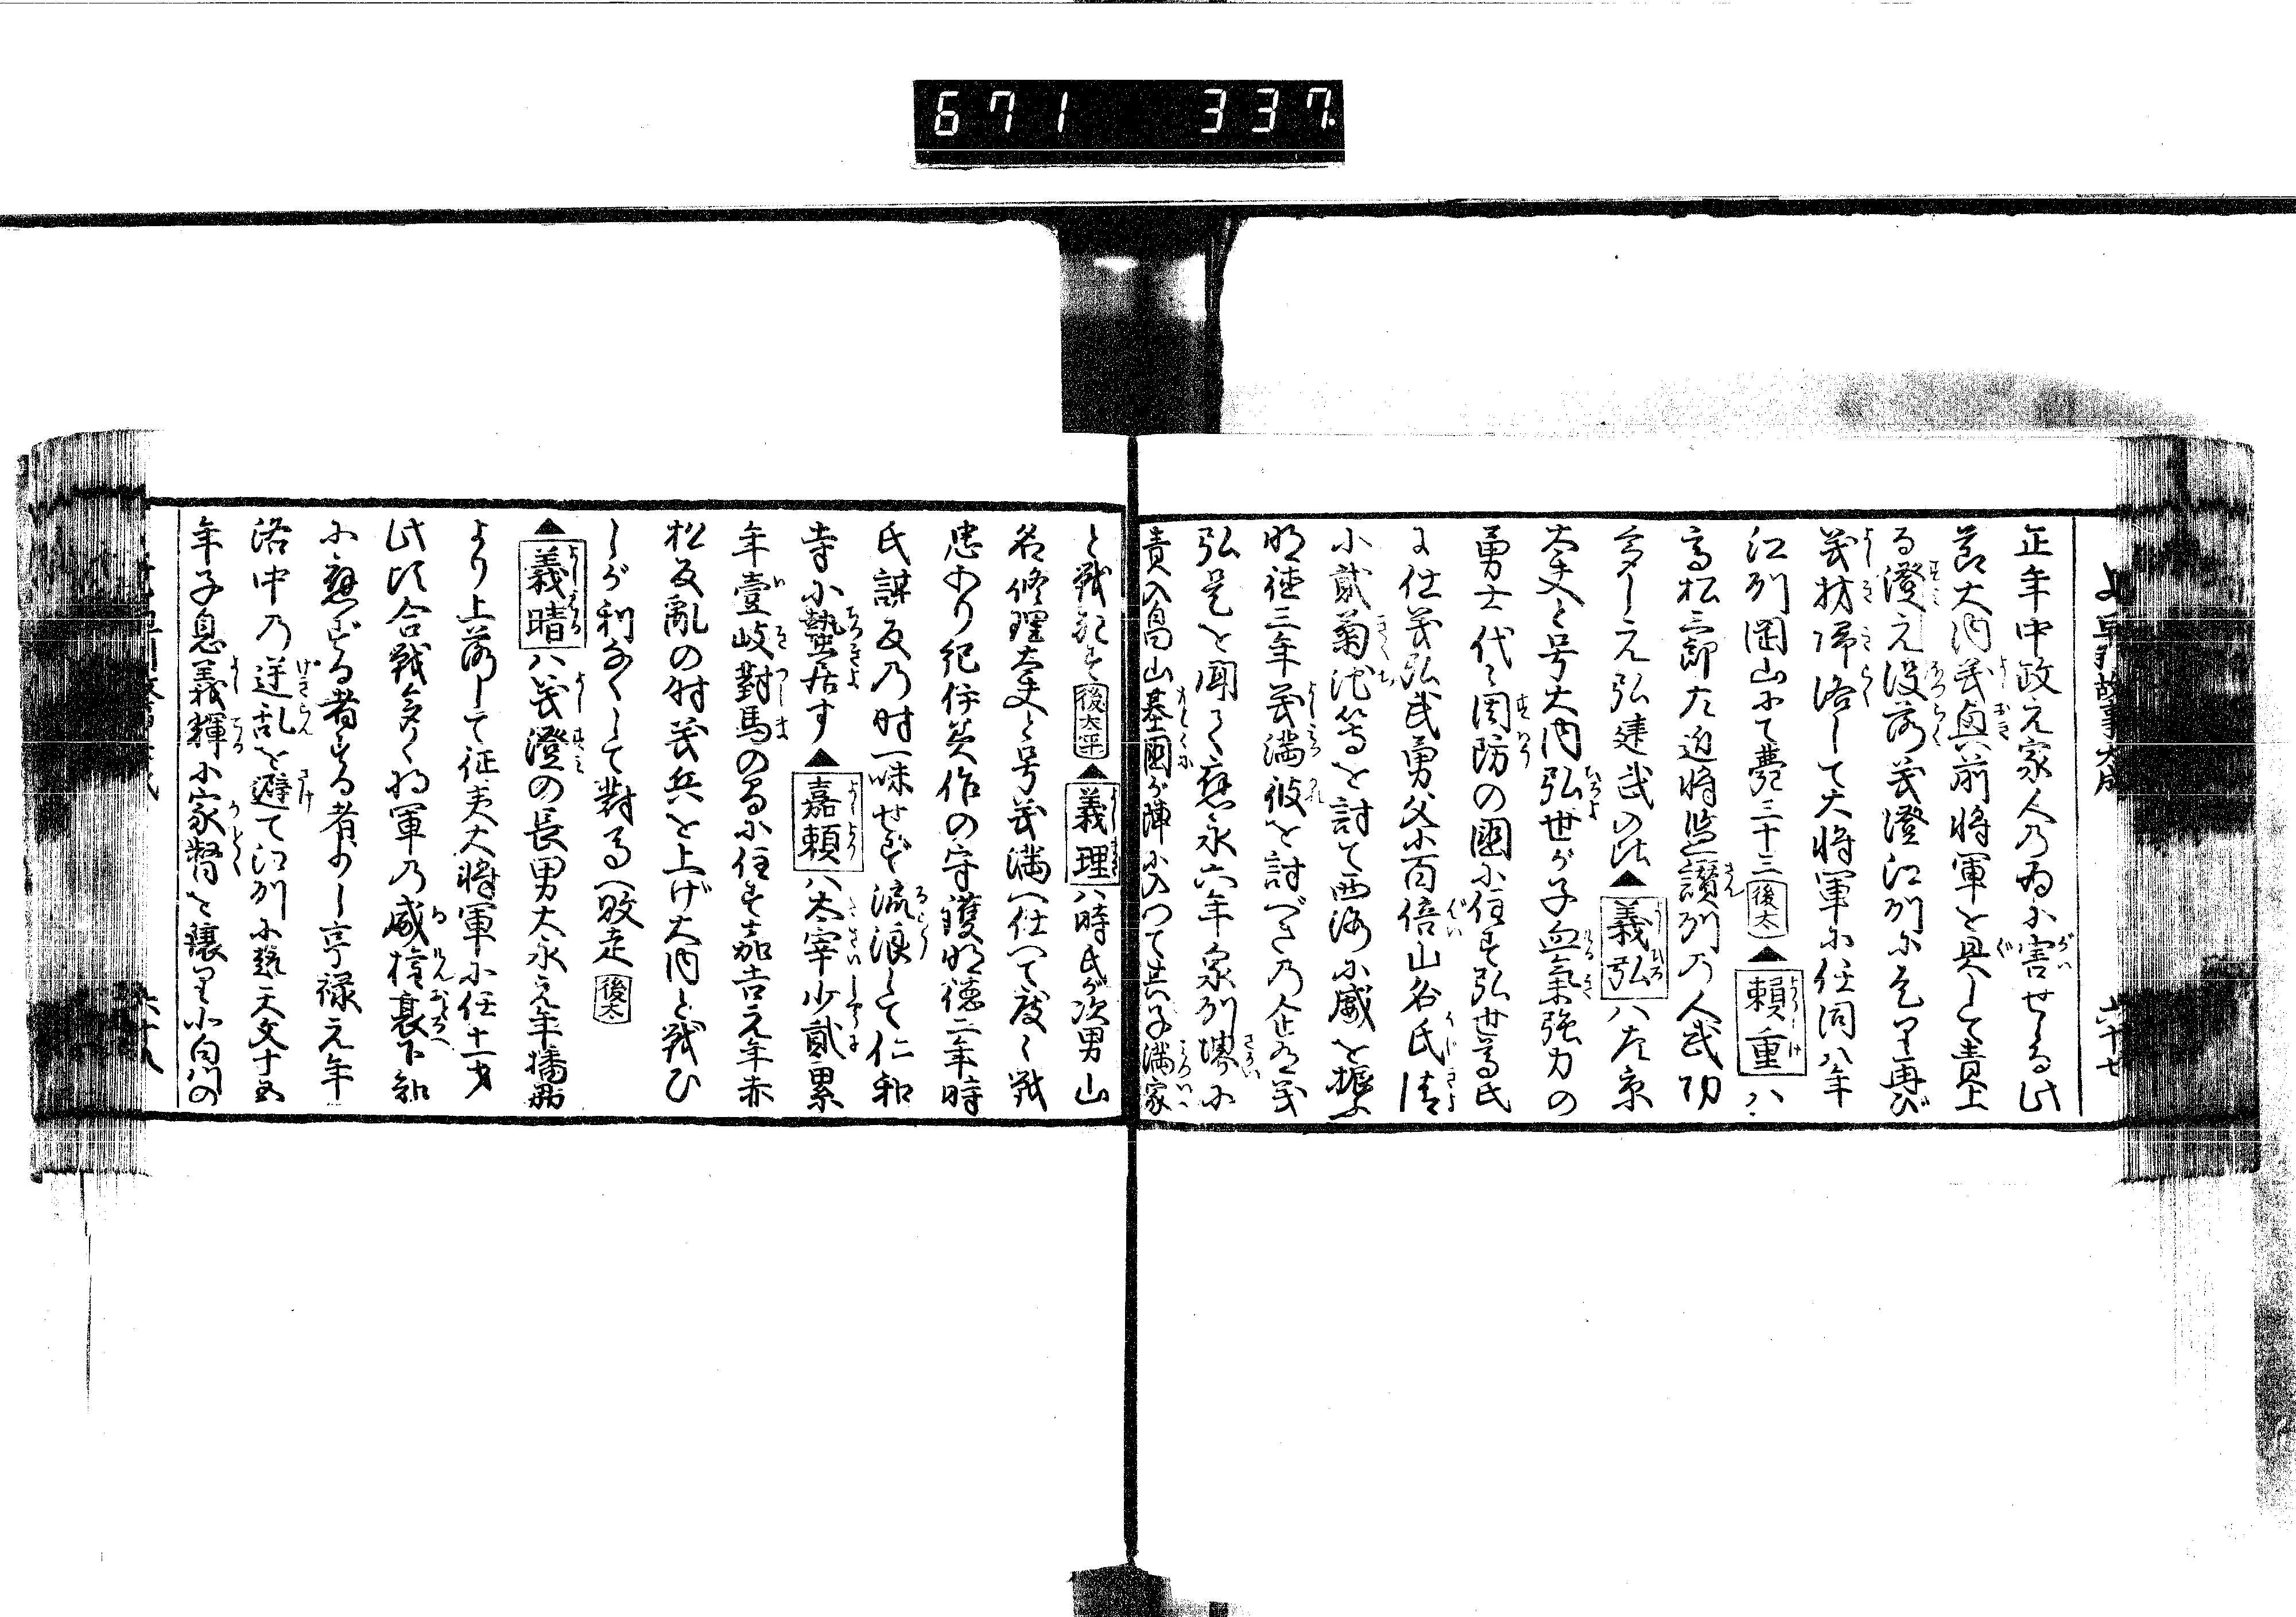 671 337
正年中政元家人乃為に害せらる此
節大内義興前将軍を具して責上
る澄元没落義澄江州に死し再び
義材帰洛して大将軍に任同八年
江州岡山にて薨三十三 後太 ▲頼重ハ
高松三郎左近将監讃州の人武功
多し元弘建武の比▲義弘ハ左京
大夫と号大内弘世が子血氣強力の
勇士代々周防の國に住す弘世尊氏
に仕義弘武勇父に百倍山名氏清
小貮菊池等を討て西海に威を振ふ
明徳三年義満彼を討べきの企有義
弘是を聞て應永六年泉州堺に
責入畠山基國が陣に入つて其子満家
と戦死す 後太平 ▲義理ハ時氏が次男山
名修理大夫と号義満へ仕へて度々戦
忠あり紀伊美作の守護明徳二年時
氏謀反乃时一味せず流浪して仁和
寺に蟄居す▲嘉頼ハ太宰少貳累
年壹岐對馬の島に住す嘉吉元年赤
松反亂の时義兵を上げ大内と戦ひ
しが利なくして對馬へ敗走 後太
▲義晴ハ義澄の長男大永元年播州
より上落して征夷大将軍に任十一才
此比合戦多く将軍乃威権衰下知
に應ずる者ある者少し享禄元年
洛中乃逆乱を避て江州に赴天文十五
年子息義輝に家督を譲